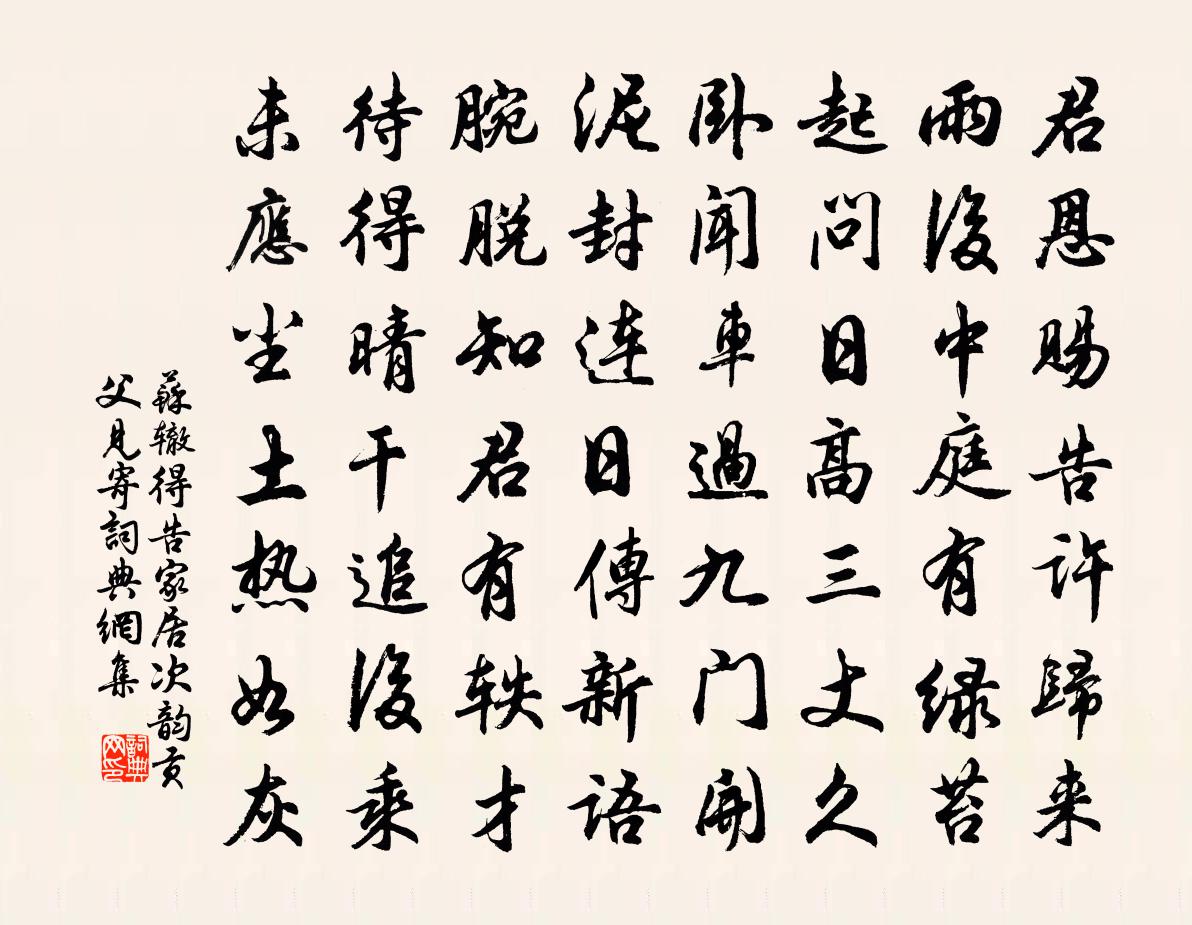 君恩賜告許歸来
雨後中庭有绿苔
起問日高三丈久
卧闻車過九门開
泥封連日傳新语
腕脱知君有轶才
待得晴干追後乘
未應尘土热如灰
蘇辙得告家居次韵贡
父見寄詞典網集
詞典
网印